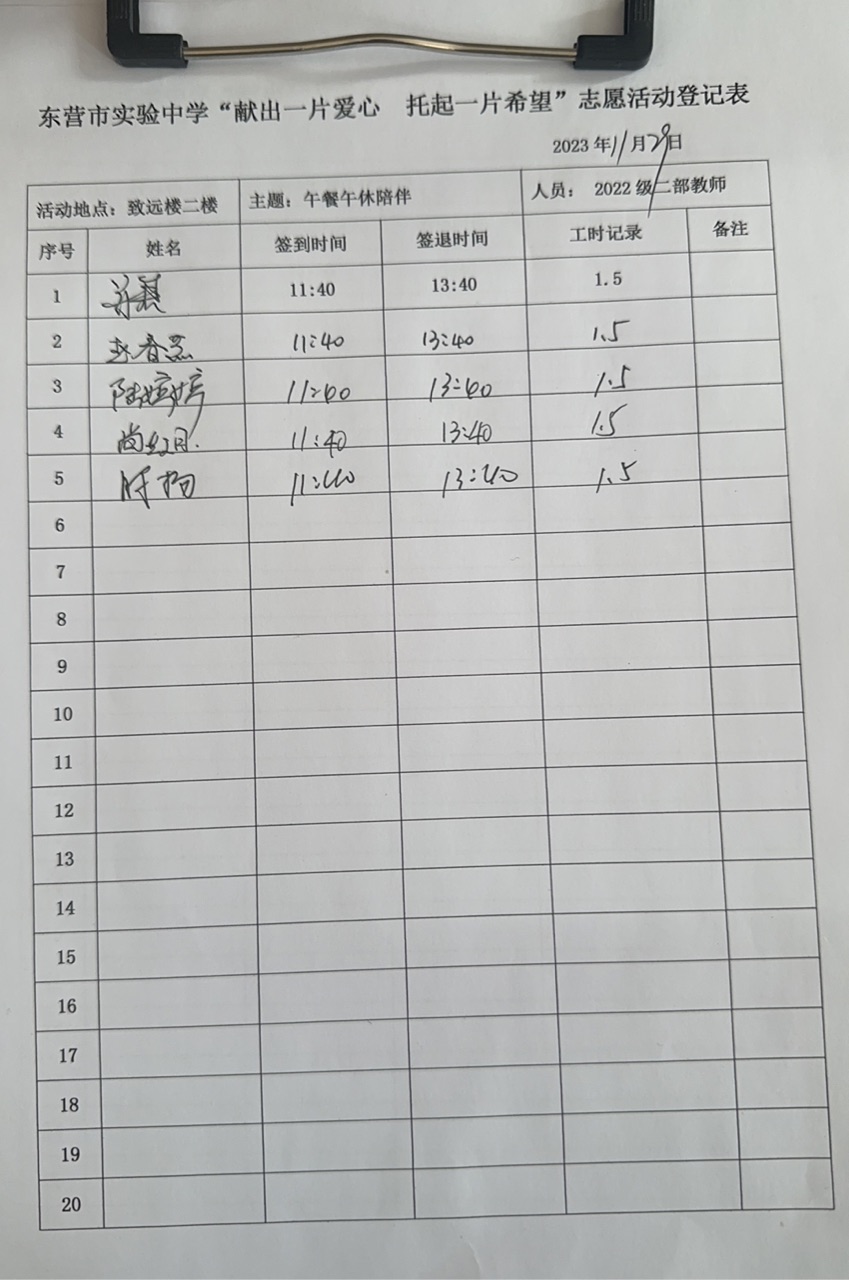 东营市实验中学“献出一片爱心 托起一片希望”志愿活动登记表
2023 年 11 月 29 日
活动地点：致远楼二楼 主题：午餐午休陪伴 人员： 2022 级二部教师
序号 姓名 签到时间 签退时间 工时记录 备注
1 11:40 13:40 1.5
2 11:40 13:40 1.5
3 陆婷婷 11:40 13:40 1.5
4 尚红月 11:40 13:40 1.5
5 11:40 13:40 1.5
6
7
8
9
10
11
12
13
14
15
16
17
18
19
20